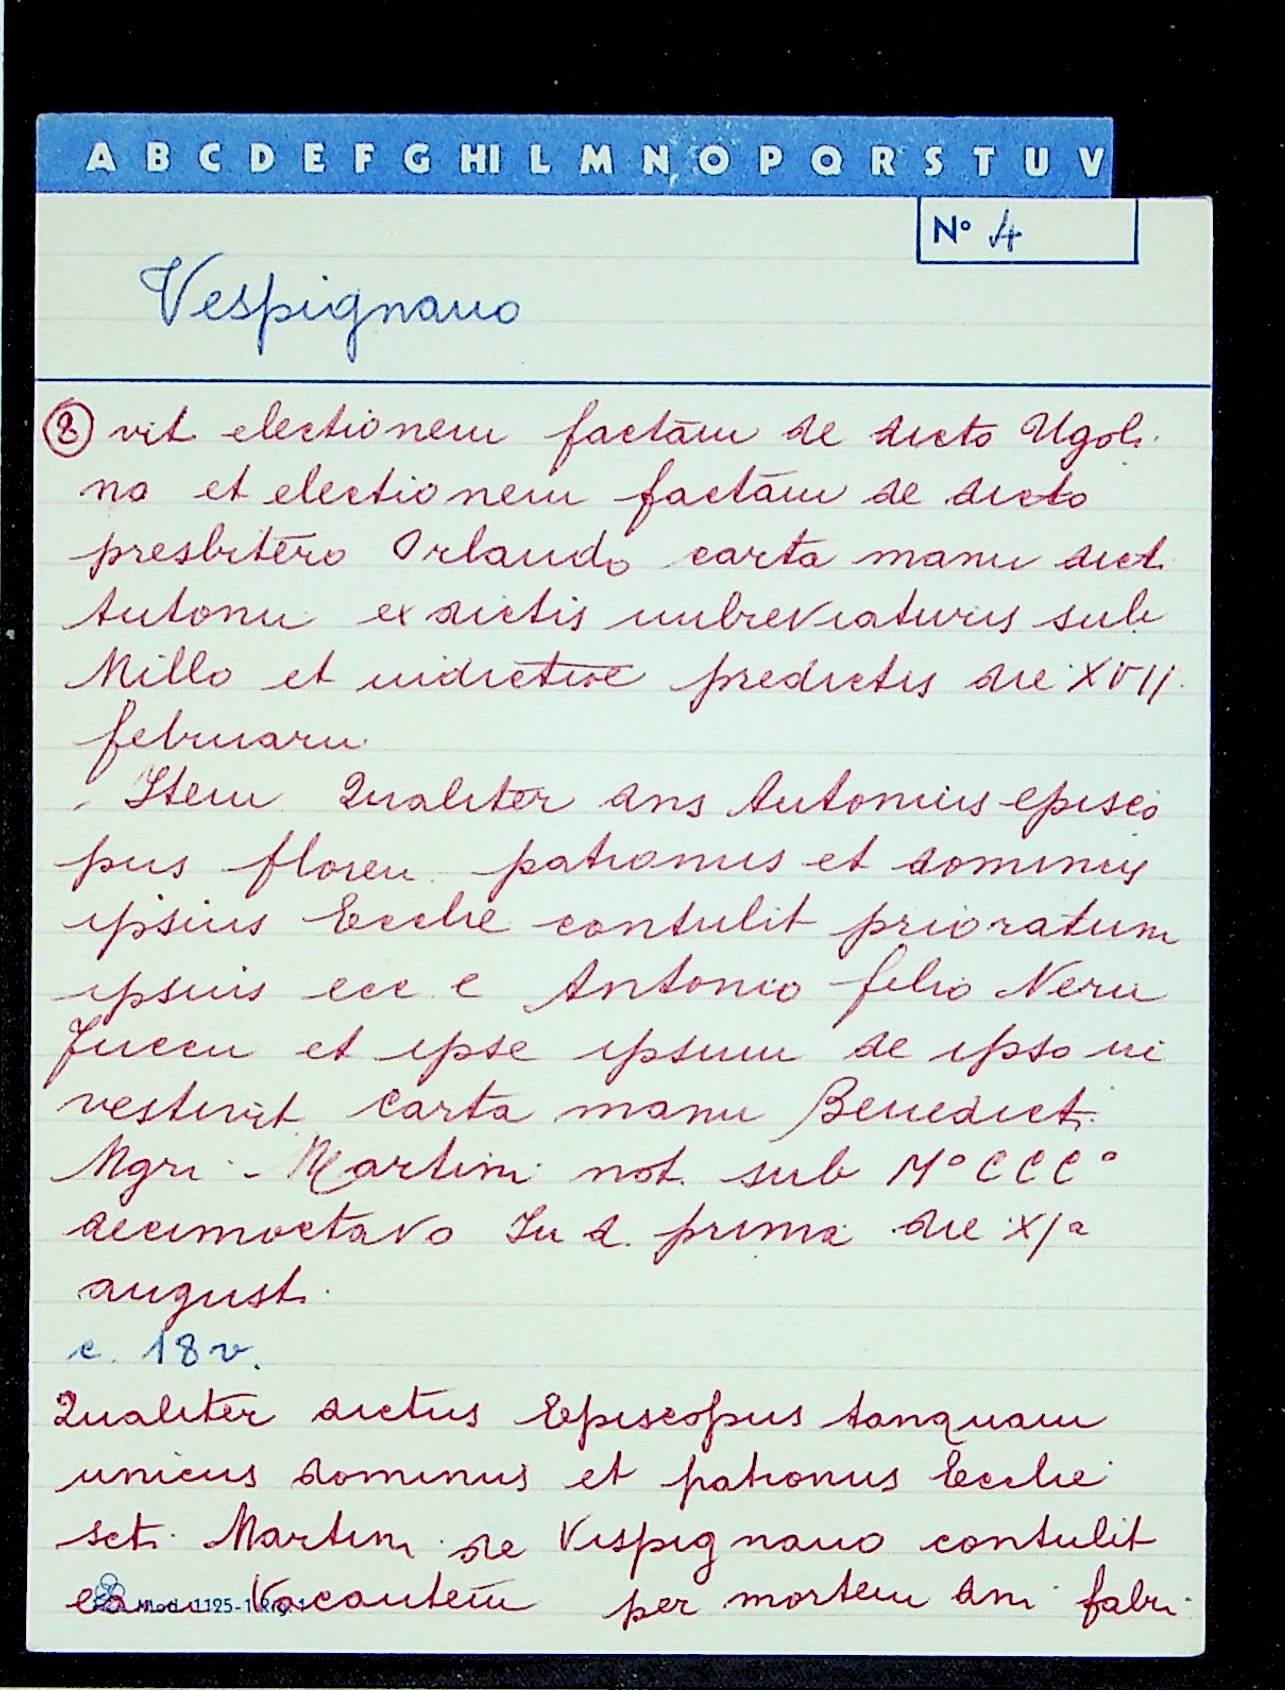 A B C D E F G HI L M N O P Q R S T U V
N° 4
Vespignano
② vit electionem factām de dicto Ugoli
no et electionem factām de dicto
presbitēro Orlando carta manu dict.
Antonii ex dictis imbreviaturis sub
Millo et indictiōē predictis die XVII
februarii.
Item Qualitēr dns Antonius episco
pus floren. patronus et dominus
ipsius Ecclie contulit prioratum
ipsius ecc.e Antonio filio Nerii
et ipse ipsum de ipso in
vestivit carta manu Benedicti
Mgri Martini not. sub M° CCC°
decimoctavo Ind. prima die XIa
augusti.
c. 18 v.
Qualitēr dictus Episcopus tanquam
unicus dominus et patronus Ecclie
scti Martini de Vispignano contulit
eam Vacantēm per mortem dni fabri
Mod. 1125-1 Rig. 1